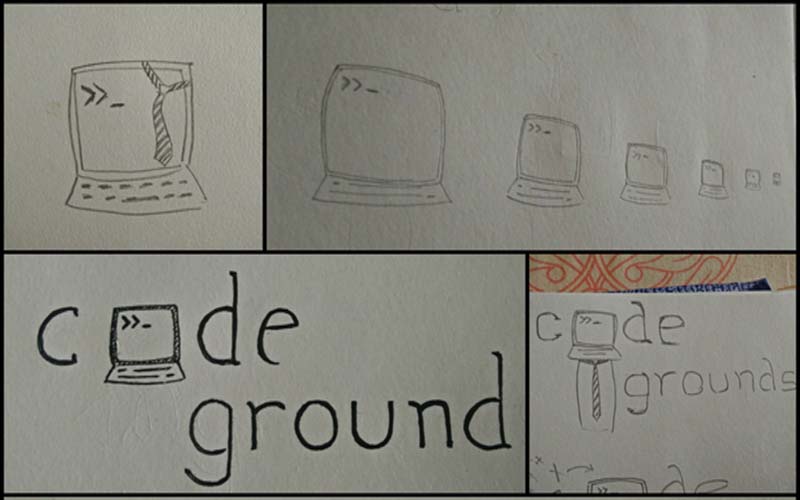 >>_
>>_
>>_
>>_
>>_
c
>>_
de
ground
c
>>_
de
grounds
>>_
de